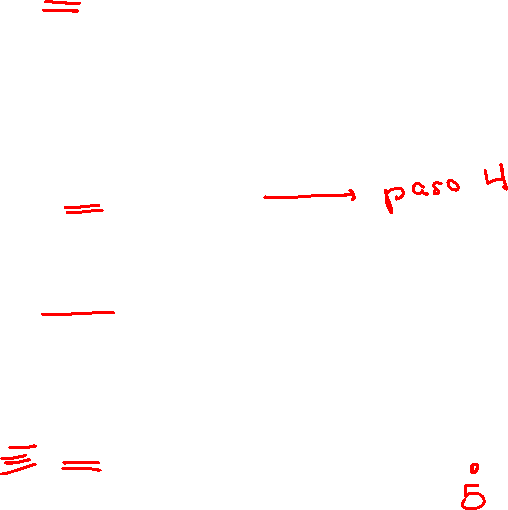 =
= → paso 4
—
= °
5